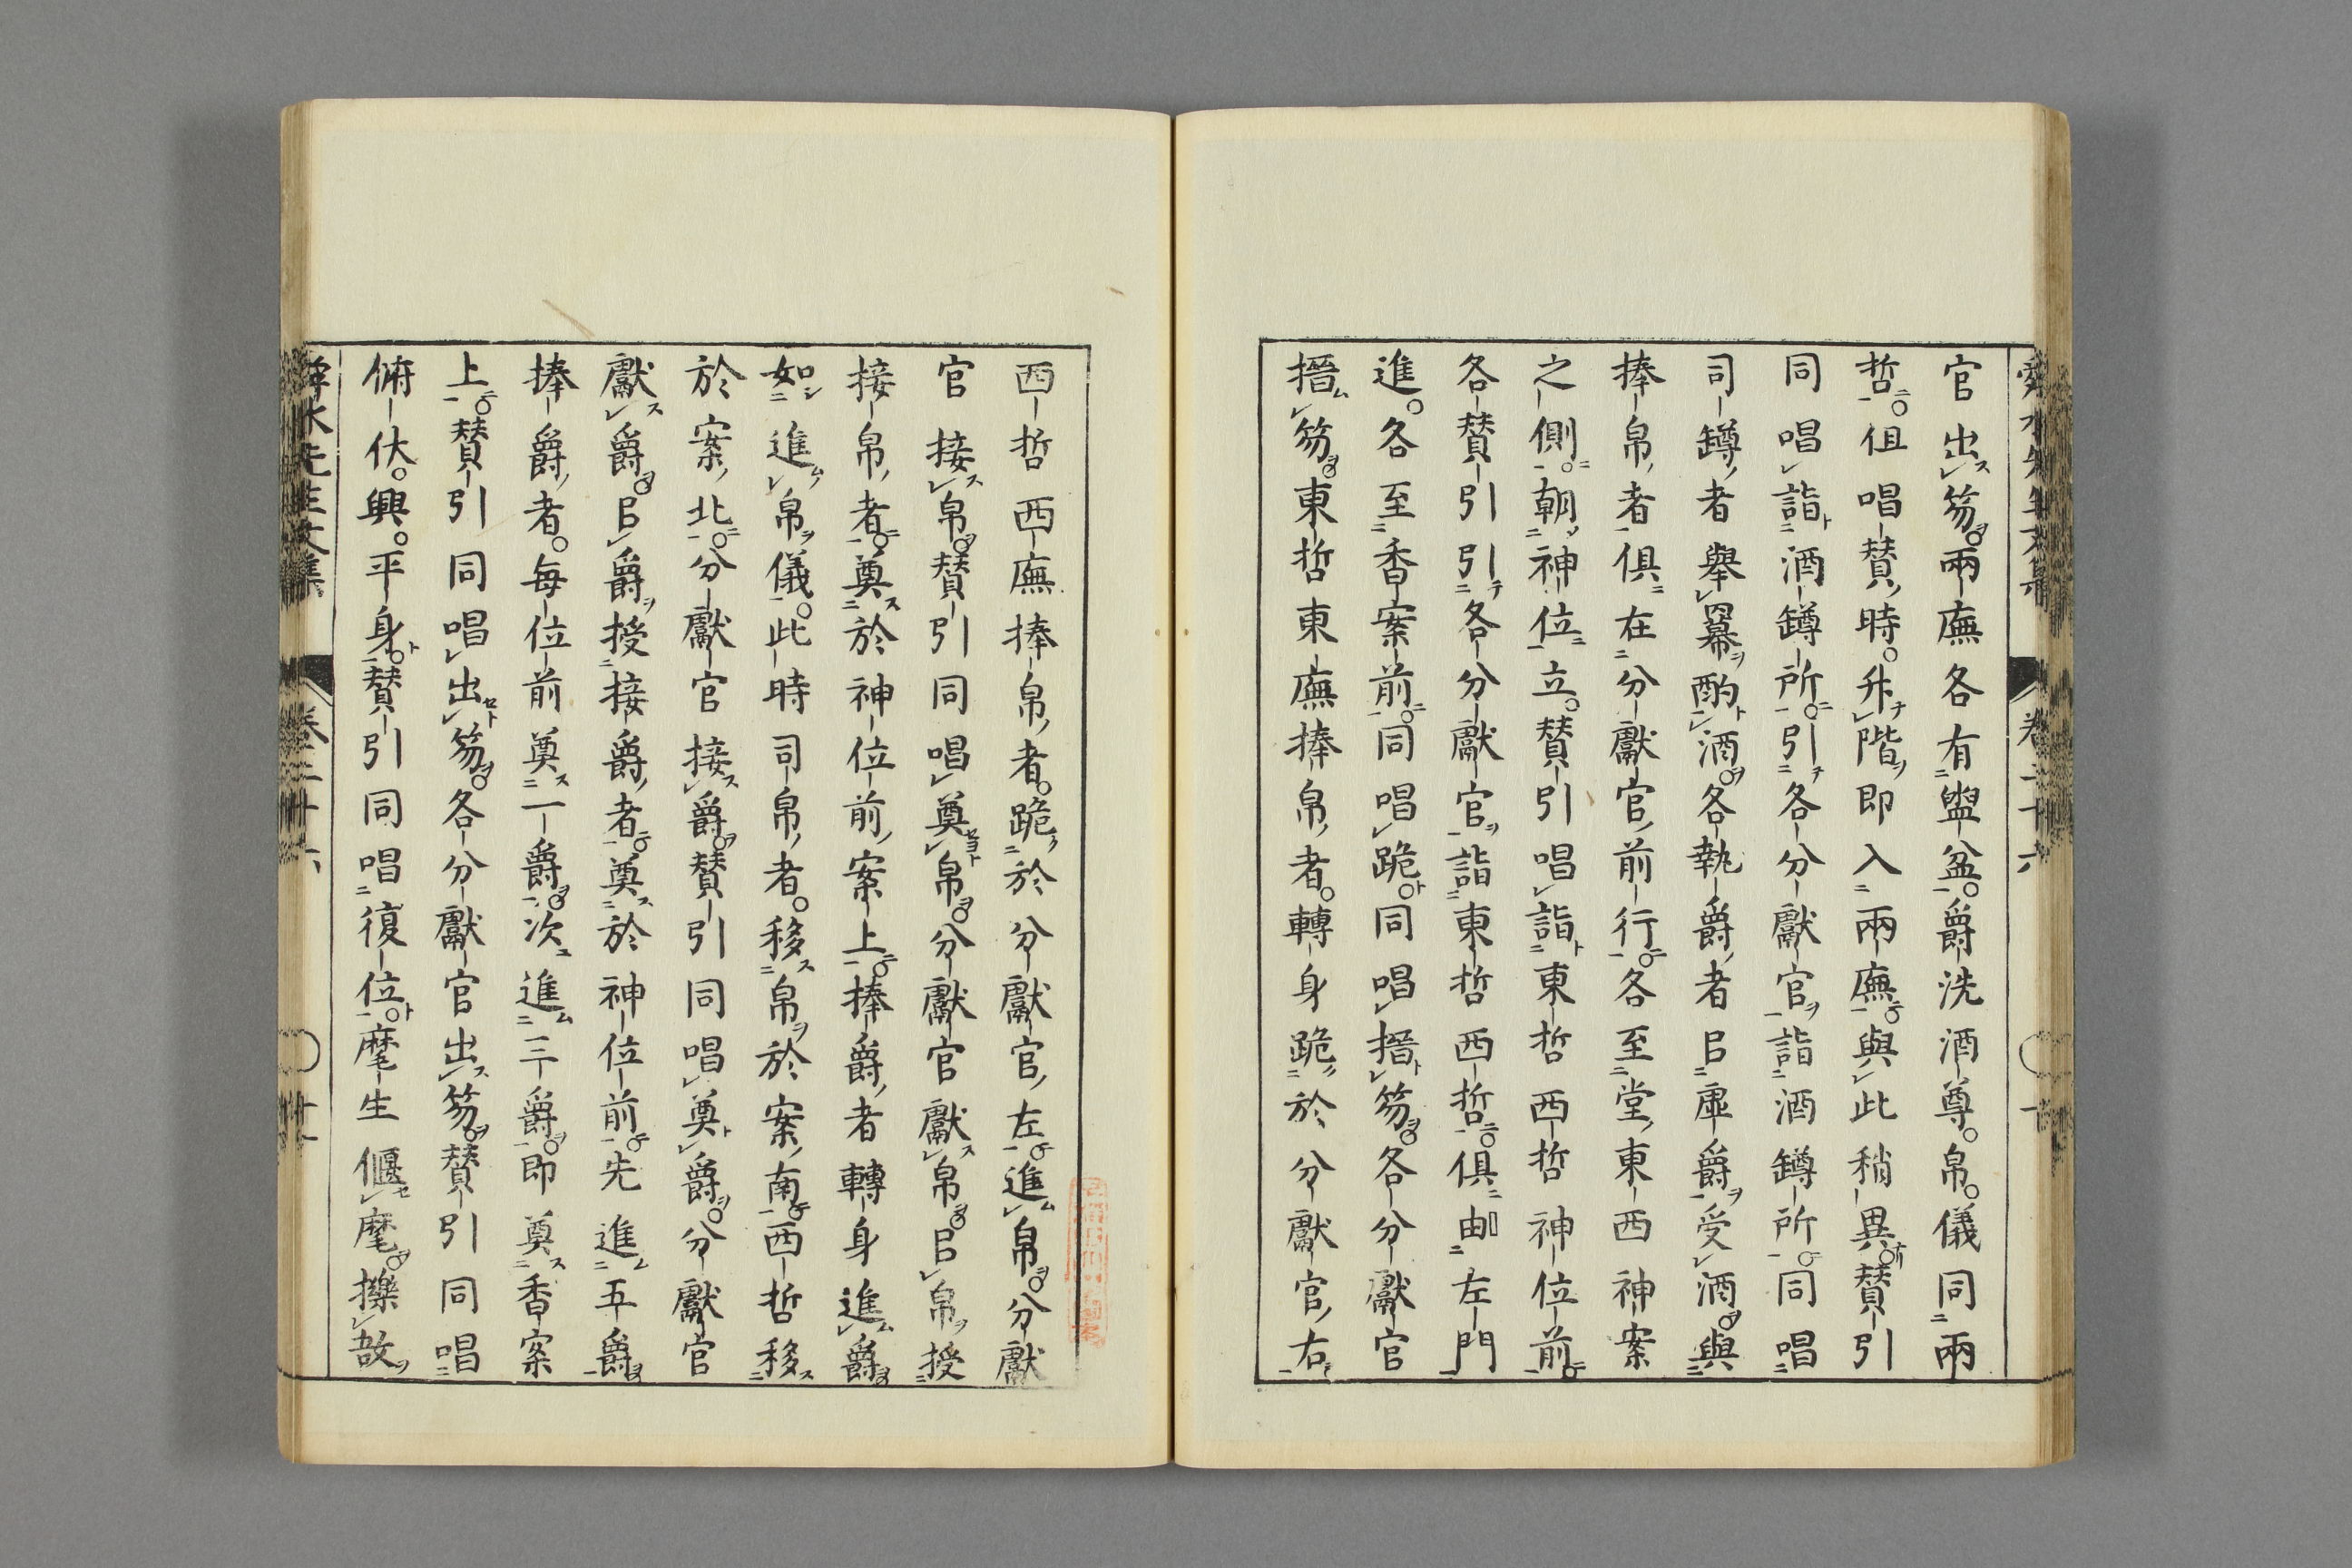 官出笏。兩廡各有盥盆。爵洗酒尊。帛。儀同兩
哲。但唱贊時。升階即入兩廡。與此稍異。贊引
同唱詣酒罇所。引各分獻官詣酒罇所。同唱
司罇者舉羃酌酒。各執爵者㠯虛爵受酒。與
捧帛者俱在分獻官前行。各至堂東西神案
之側。朝神位立。贊引唱詣東哲西哲神位前
各贊引引各分獻官詣東哲西哲。俱由左門
進。各至香案前。同唱跪。同唱搢笏。各分獻官
搢笏。東哲東廡捧帛者。轉身跪於分獻官右
西哲西廡捧帛者。跪於分獻官左。進帛。分獻
官接帛。贊引同唱奠帛。分獻官獻帛。㠯帛授
接帛者。奠於神位前案上。捧爵者轉身進爵
如進帛儀。此時司帛者。移帛於案南。西哲移
於案北。分獻官接爵。贊引同唱奠爵。分獻官
獻爵。㠯爵授接爵者。奠於神位前。先進五爵
捧爵者。每位前奠一爵。次進三爵。即奠香案
上。贊引同唱出笏。各分獻官出笏。贊引同唱
俯伏。興。平身。贊引同唱復位。麾生偃麾。擽敔
卷二十六
舜水先生文集
卷二十六